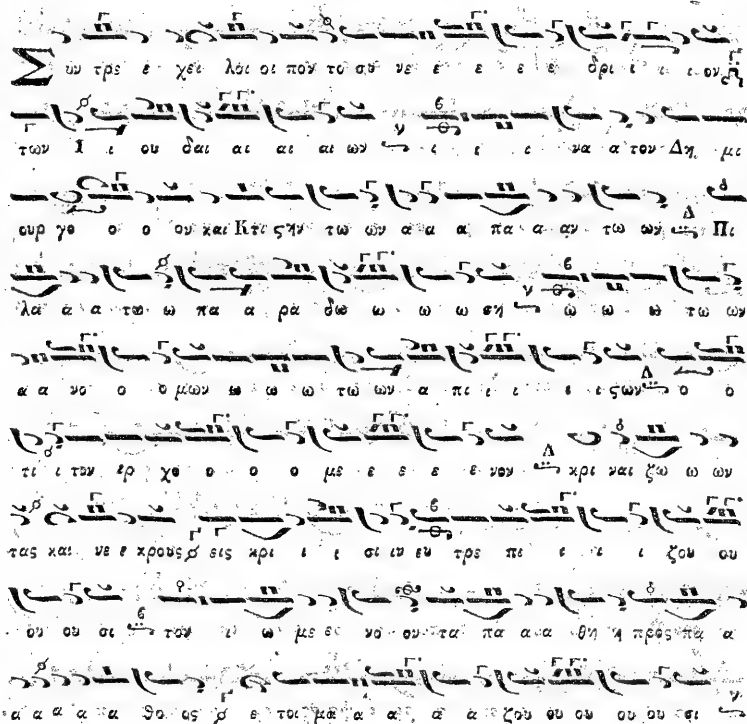 Συν τρε ε χει λοι οι πον το συ νε ε ε ε ε δρι ι ι ι ον
των Ι ι ου δαι αι αι αι ων ι ι ι να α τον Δη μι
ουρ γο ο ο ον και Κτι ςην τω ων α α α πα α αν τω ων Πι
λα α α τω ω πα α ρα δω ω ω ω ση ω ω ω τω ων
α α νο ο ο μων ω ω ω τω ων α πι ι ι ι ι ςων ο ο
τι ι τον ερ χο ο ο ο με ε ε ε ε νον κρι ναι ζω ω ων
τας και νε ε κρους εις κρι ι ι σι ιν ευ τρε πι ι ι ι ζου ου
ου ου σι τον ι ω με ε νο ον τα πα α α θη η προς πα α
α α α α α θο ος ε τοι μα α α α α ζου ου ου ου ου σι